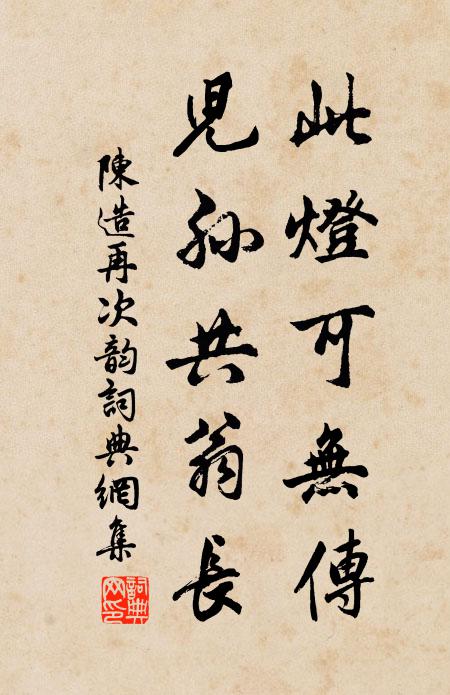 此燈可無傳
兒孫共翁長
陳造再次韵詞典網集
詞典網印